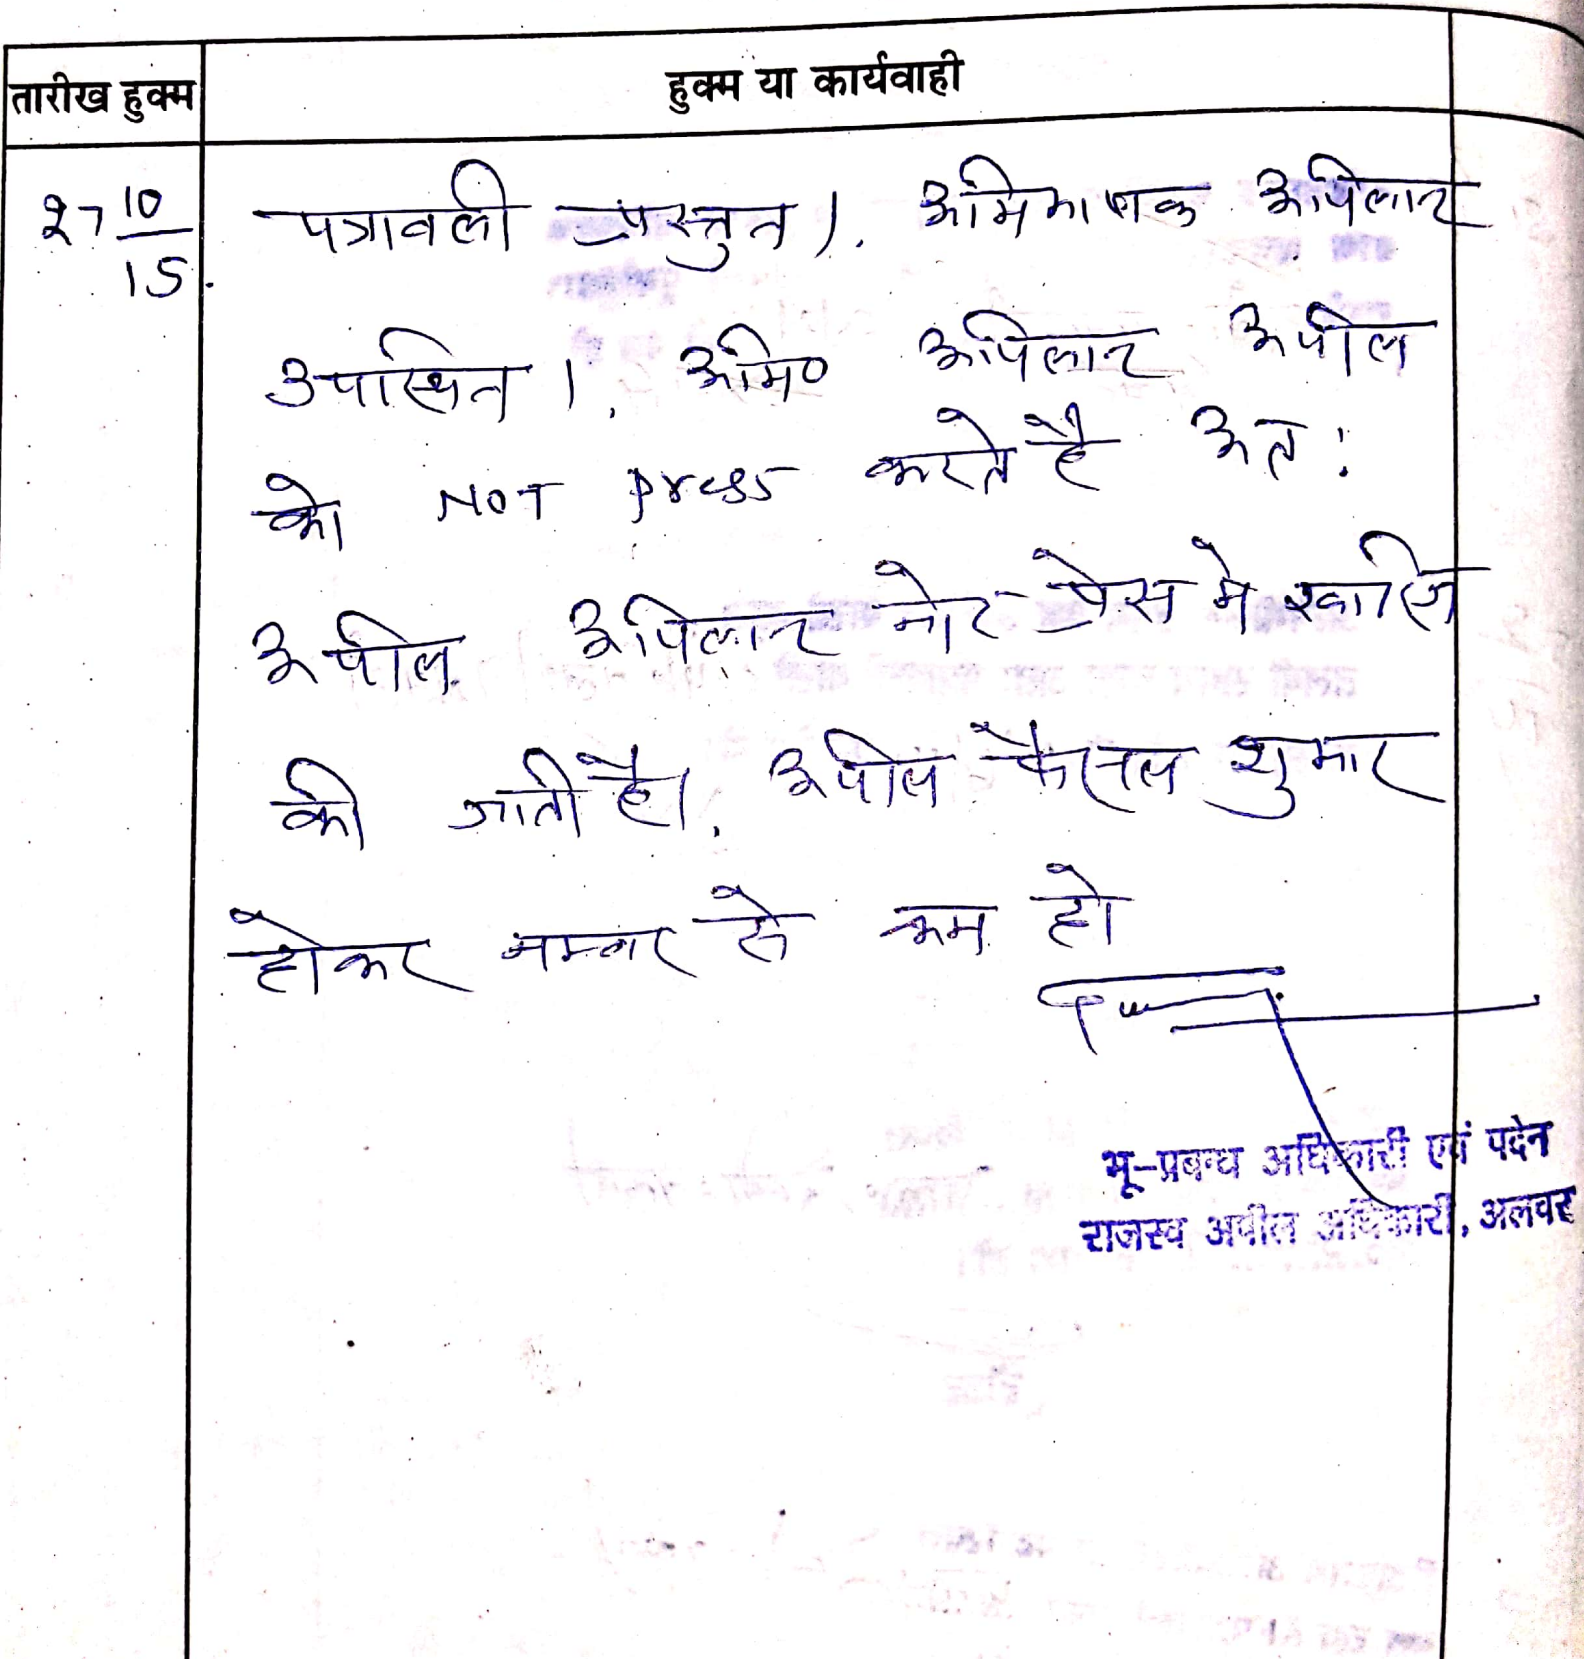 तारीख हुक्म
हुक्म या कार्यवाही
27 10/15
पत्रावली प्रस्तुत। अभिभाषक अपिलान्ट
उपस्थित। अभि० अपिलान्ट अपील
को NOT press करते है अत:
अपील अपिलान्ट नोट प्रेस मे खारिज
की जाती है। अपील फैसल शुमार
होकर नम्बर से कम हो
भू-प्रबन्ध अधिकारी एवं पदेन
राजस्व अपील अधिकारी, अलवर